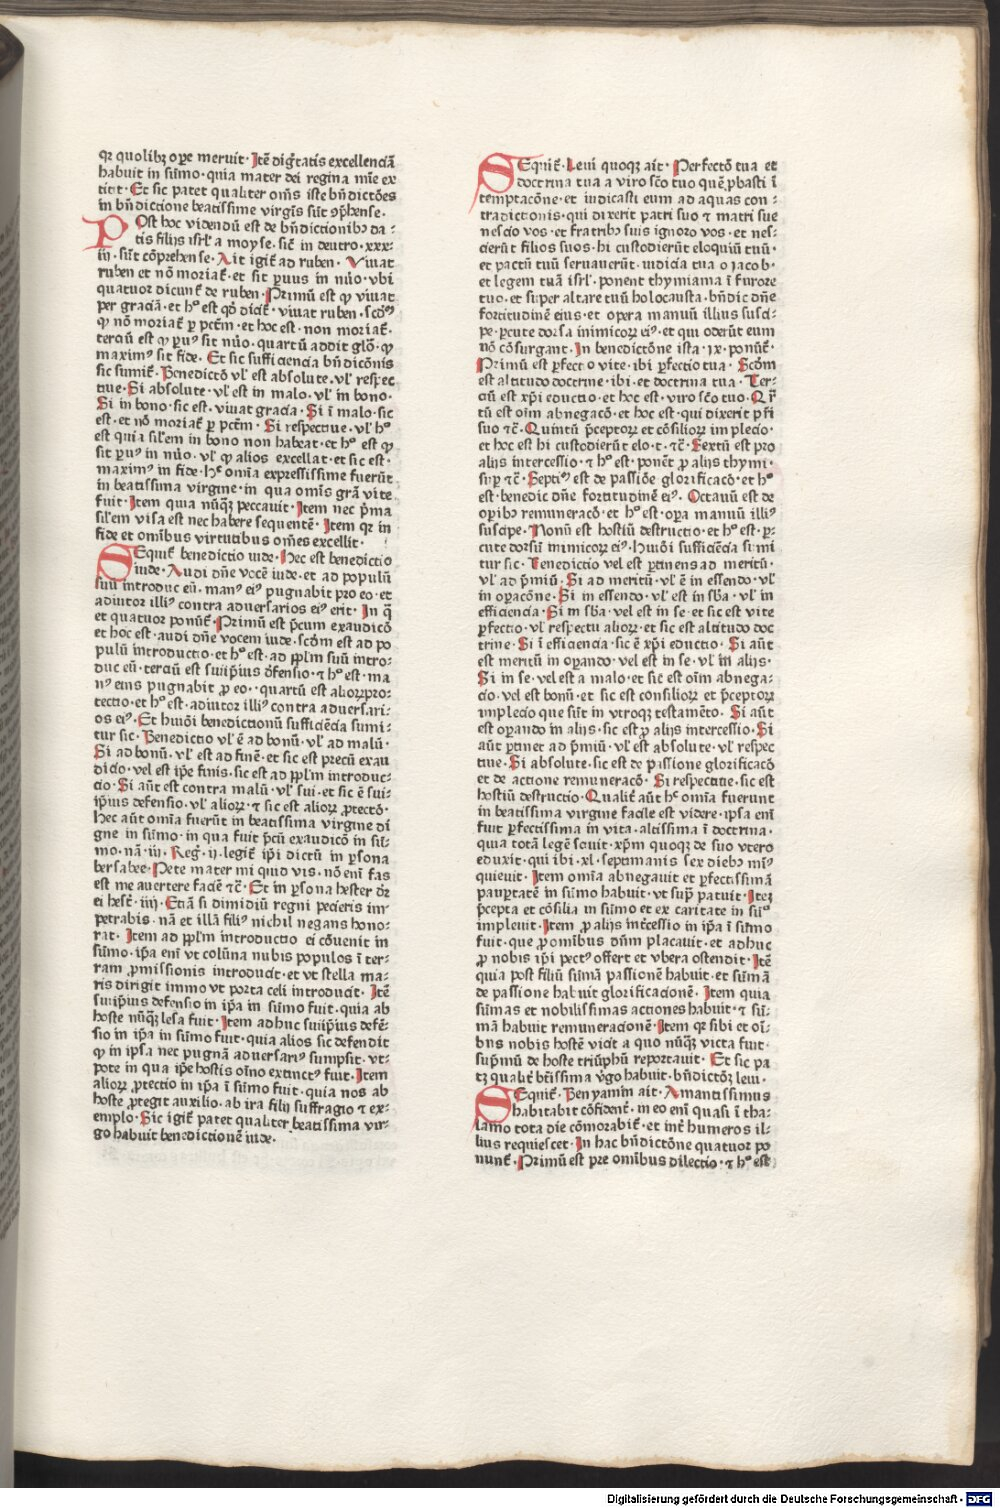 qꝛ quolibꝫ oꝑe meruit · Itē dig̃tatis excellenciā
habuit in sūmo · quia mater dei regina mīe ex
titit · Et sic patet qualiter om̄s iste bn̄dictōes
in bn̄dictione beatissime virgīs sūt ꝯp̃hense ·
Post hoc videndū est de bn̄dictionibꝫ da-
tis filijs isrl̓ a moyse · sic̄ in deutro · xxx-
iij · sūt cōp̃hense · Ait igit̄ ad ruben · Viuat
ruben et nō moriat̄ · et sit ꝑuus in nūo · vbi
quatuor dicunt̄ de ruben · Primū est ꝙ viuat
per graciā · et hᵒ est qd̓ dicit̄ · viuat ruben · scd̓ꝯ
ꝙ nō moriat̄ ꝑ pctm̄ · et hoc est · non moriat̄ ·
terciū est ꝙ ꝑuꝯ sit nūo · quartū addit glō · ꝙ
maximꝯ sit fide · Et sic sufficiencia bn̄dicōnis
sic sumit̄ · Benedictō vl̓ est absolute · vl̓ respec
tiue · Si absolute · vl̓ est in malo · vl̓ in bono ·
Si in bono · sic est · viuat gracia · Si ī malo · sic
est · et nō moriat̄ ꝑ pctm̄ · Si respectiue · vl̓ hᵒ
est quia sil̓em in bono non habeat · et hᵒ est ꝙ
sit ꝑuꝯ in nūo · vl̓ ꝙ alios excellat · et sic est ·
maximꝯ in fide · hᶜ om̄ia expressissime fuerūt
in beatissima virgine · in qua om̄is grā vite
fuit · Item quia nūqꝫ peccauit · Item nec p̃ma
sil̓em visa est nec habere sequentē · Item qꝛ in
fide et om̄ibus virtutibus om̄es excellit ·
Sequit̄ benedictio iude · Hec est benedictio
iude · Audi dn̄e vocē iude · et ad populū
suū introduc eū · manꝯ eiꝯ pugnabit pro eo · et
adiutor illiꝯ contra aduersarios eiꝯ erit · In q̄
et quatuor ponūt̄ · Primū est p̃cum exaudicō
et hoc est · audi dn̄e vocem iude · scd̓m est ad po
pulū introductio · et hᵒ est · ad ppl̓m suū intro-
duc eū · terciū est suiip̄ius d̓fensio · ⁊ hᵒ est · ma
nꝯ eius pugnabit ꝓ eo · · quartū est alioꝝ pro-
tectio · et hᵒ est · adiutor illiꝯ contra aduersari-
os eiꝯ · Et huiōi benedictionū sufficiēcia sumi-
tur sic · Benedictio vl̓ ē ad bonū · vl̓ ad malū ·
Si ad bonū · vl̓ est ad finē · et sic est precū exau
dicio · vel est ip̄e finis · sic est ad ppl̓m introduc-
cio · Si aūt est contra malū · vl̓ sui · et sic ē sui-
ip̄ius defensio · vl̓ alioꝝ · ⁊ sic est alioꝝ ꝓtectō ·
Hec aūt om̄ia fuerūt in beatissima virgine di
gne in sūmo · in qua fuit p̃cū exaudicō in sil̓-
mo · nā · iij · Reg̃ · ij · legit̄ ip̄i dictū in ꝑsona
bersabee · Pete mater mi quid vis · nō eni̅ fas
est me auertere faciē ⁊c̄ · Et in ꝑsona hester dr̄
ei hest̄ · iiij · Eciā si dimidiū regni pecieris im
petrabis · nā et illā filiꝯ nichil negans hono-
rat · Item ad ppl̓m introductio ei cōuenit in
sūmo · ip̄a eni̅ vt colūna nubis populos ī ter-
ram ꝓmissionis introducit · et vt stella ma-
ris dirigit immo vt porta celi introducit · Itē
suiip̄ius defensio in ip̄a in sūmo fuit · quia ab
hoste nūqꝫ lesa fuit · Item adhuc suiip̄ius defē-
sio in ip̄a in sūmo fuit · quia alios sic defendit
ꝙ in ipsa nec pugnā aduersariꝯ sumpsit · vt-
pote in qua ip̄e hostis oīno extinctꝯ fuit · Item
alioꝝ ꝓtectio in ip̄a ī sūmo fuit · quia nos ab
hoste ꝓtegit auxilio · ab ira filij suffragio ⁊ ex-
emplo · Sic igit̄ patet qualiter beatissima vir-
go habuit benedictionē iude ·
Sequit̄ · Leui quoqꝫ ait · Perfectō tua et
doctrina tua a viro scō tuo quē ꝓbasti ī
temptacōne · et iudicasti eum ad aquas con-
tradictonis · qui dixerit patri suo ⁊ matri sue
nescio vos · et fratribꝫ suis ignoro vos · et nes-
cierūt filios suos · hi custodierūt eloquiū tuū ·
et pactū tuū seruauerūt · iudicia tua o iacob ·
et legem tuā isrl̓ · ponent thymiama ī furore
tuo · et super altare tuū holocausta · bn̄dic dn̄e
fortitudinē eius · et opera manuū illius susci-
pe · ꝑcute dorsa inimicoꝝ eiꝯ · et qui oderūt eum
nō cōsurgant · In benedictōne ista · ix · ponūt̄ ·
Primū est ꝑfectio vite · ibi ꝑfectio tua · Scd̓m
est altitudo doctrine · ibi · et doctrina tua · Ter-
ciū est xp̄i eductio · et hoc est · viro scō tuo · Qr̄
tū est oīm abnegacō · et hoc est · qui dixerit pr̄i
suo ⁊c̄ · Quintū p̃ceptoꝝ et cōsilioꝝ implecio ·
et hoc est hi custodierūt elo · t · ⁊c̄ · Sextū est pro
alijs intercessio · ⁊ hᵒ est · ponēt ꝓ alijs thymi ·
suꝑ ⁊c̄ · Septiꝯ est de passiōe glorificacō · et hᵒ
est · benedic dn̄e fortitudinē eiꝯ · Octauū est de
oꝑibꝫ remuneracō · et hᵒ est · oꝑa manuū illiꝯ
suscipe · Nonū est hostiū destructio · et hᵒ est · ꝑ-
cute dorsū inimicoꝝ eiꝯ · huiōi sufficiēcia sumi
tur sic · Benedictio vel est ꝑtinens ad meritū ·
vl̓ ad p̃miū · Si ad meritū · vl̓ ē in essendo · vl̓
in oꝑacōne · Si in essendo · vl̓ est in sb̄a · vl̓ in
efficiencia · Si in sb̄a · vel est in se · et sic est vite
ꝑfectio · vl̓ respectu alioꝝ · et sic est altitudo doc
trine · Si ī efficiencia · sic ē xp̄i eductio · Si aūt
est meritū in oꝑando · vel est in se · vl̓ in alijs ·
Si in se · vel est a malo · et sic est oīm abnega-
cio · vel est bonū · et sic est consilioꝝ et p̃ceptoꝝ
implecio que sūt in vtroqꝫ testamēto · Si aūt
est oꝑando in alijs · sic est ꝓ alijs intercessio · Si
aūt ꝑtinet ad p̃miū · vl̓ est absolute · vl̓ respec
tiue · Si absolute · sic est de passione glorificacō
et de actione remuneracō · Si respectiue · sic est
hostiū destructio · Qualit̄ aūt hᶜ om̄ia fuerunt
in beatissima virgine facile est videre · ipsa eni̅
fuit ꝑfectissima in vita · altissima ī doctrina ·
qua totā legē sciuit · xp̄m quoqꝫ de suo vtero
eduxit · qui ibi · xl · septimanis sex diebꝫ mīꝯ
quieuit · Item om̄ia abnegauit et ꝑfectissimā
pauꝑtatē in sūmo habuit · vt sup̃ patuit · Iteꝫ
p̃cepta et cōsilia in sūmo et ex caritate in sūᵒ
impleuit · Item ꝓ alijs int̄cessio in ip̄a ī sūmo
fuit · que ꝓ om̄ibus dn̄m placauit · et adhuc
ꝓ nobis ip̄i pectꝯ offert et vbera ostendit · Itē
quia post filiū sūmā passionē habuit · et sūmā
de passione habuit glorificacionē · Item quia
sūmas et nobilissimas actiones habuit · ⁊ sū-
mā habuit remuneracionē · Item qꝛ sibi et oī-
bus nobis hostē vicit a quo nūqꝫ victa fuit ·
sup̃mū de hoste triūphū reportauit · Et sic pa
tꝫ qualit̄ btīssima v̓go habuit · bn̄dictōꝫ leui ·
Sequit̄ · Benyamin ait · Amantissimus
habitabit cōfident̄ · in eo eni̅ quasi ī tha-
lamo tota die cōmorabit̄ · et int̄ humeros il-
lius requiescet · In hac bn̄dictōne quatuor po
nunt̄ · Primū est pre om̄ibus dilectio · ⁊ hᵒ est
Digitalisierung gefördert durch die Deutsche Forschungsgemeinschaft - DFG